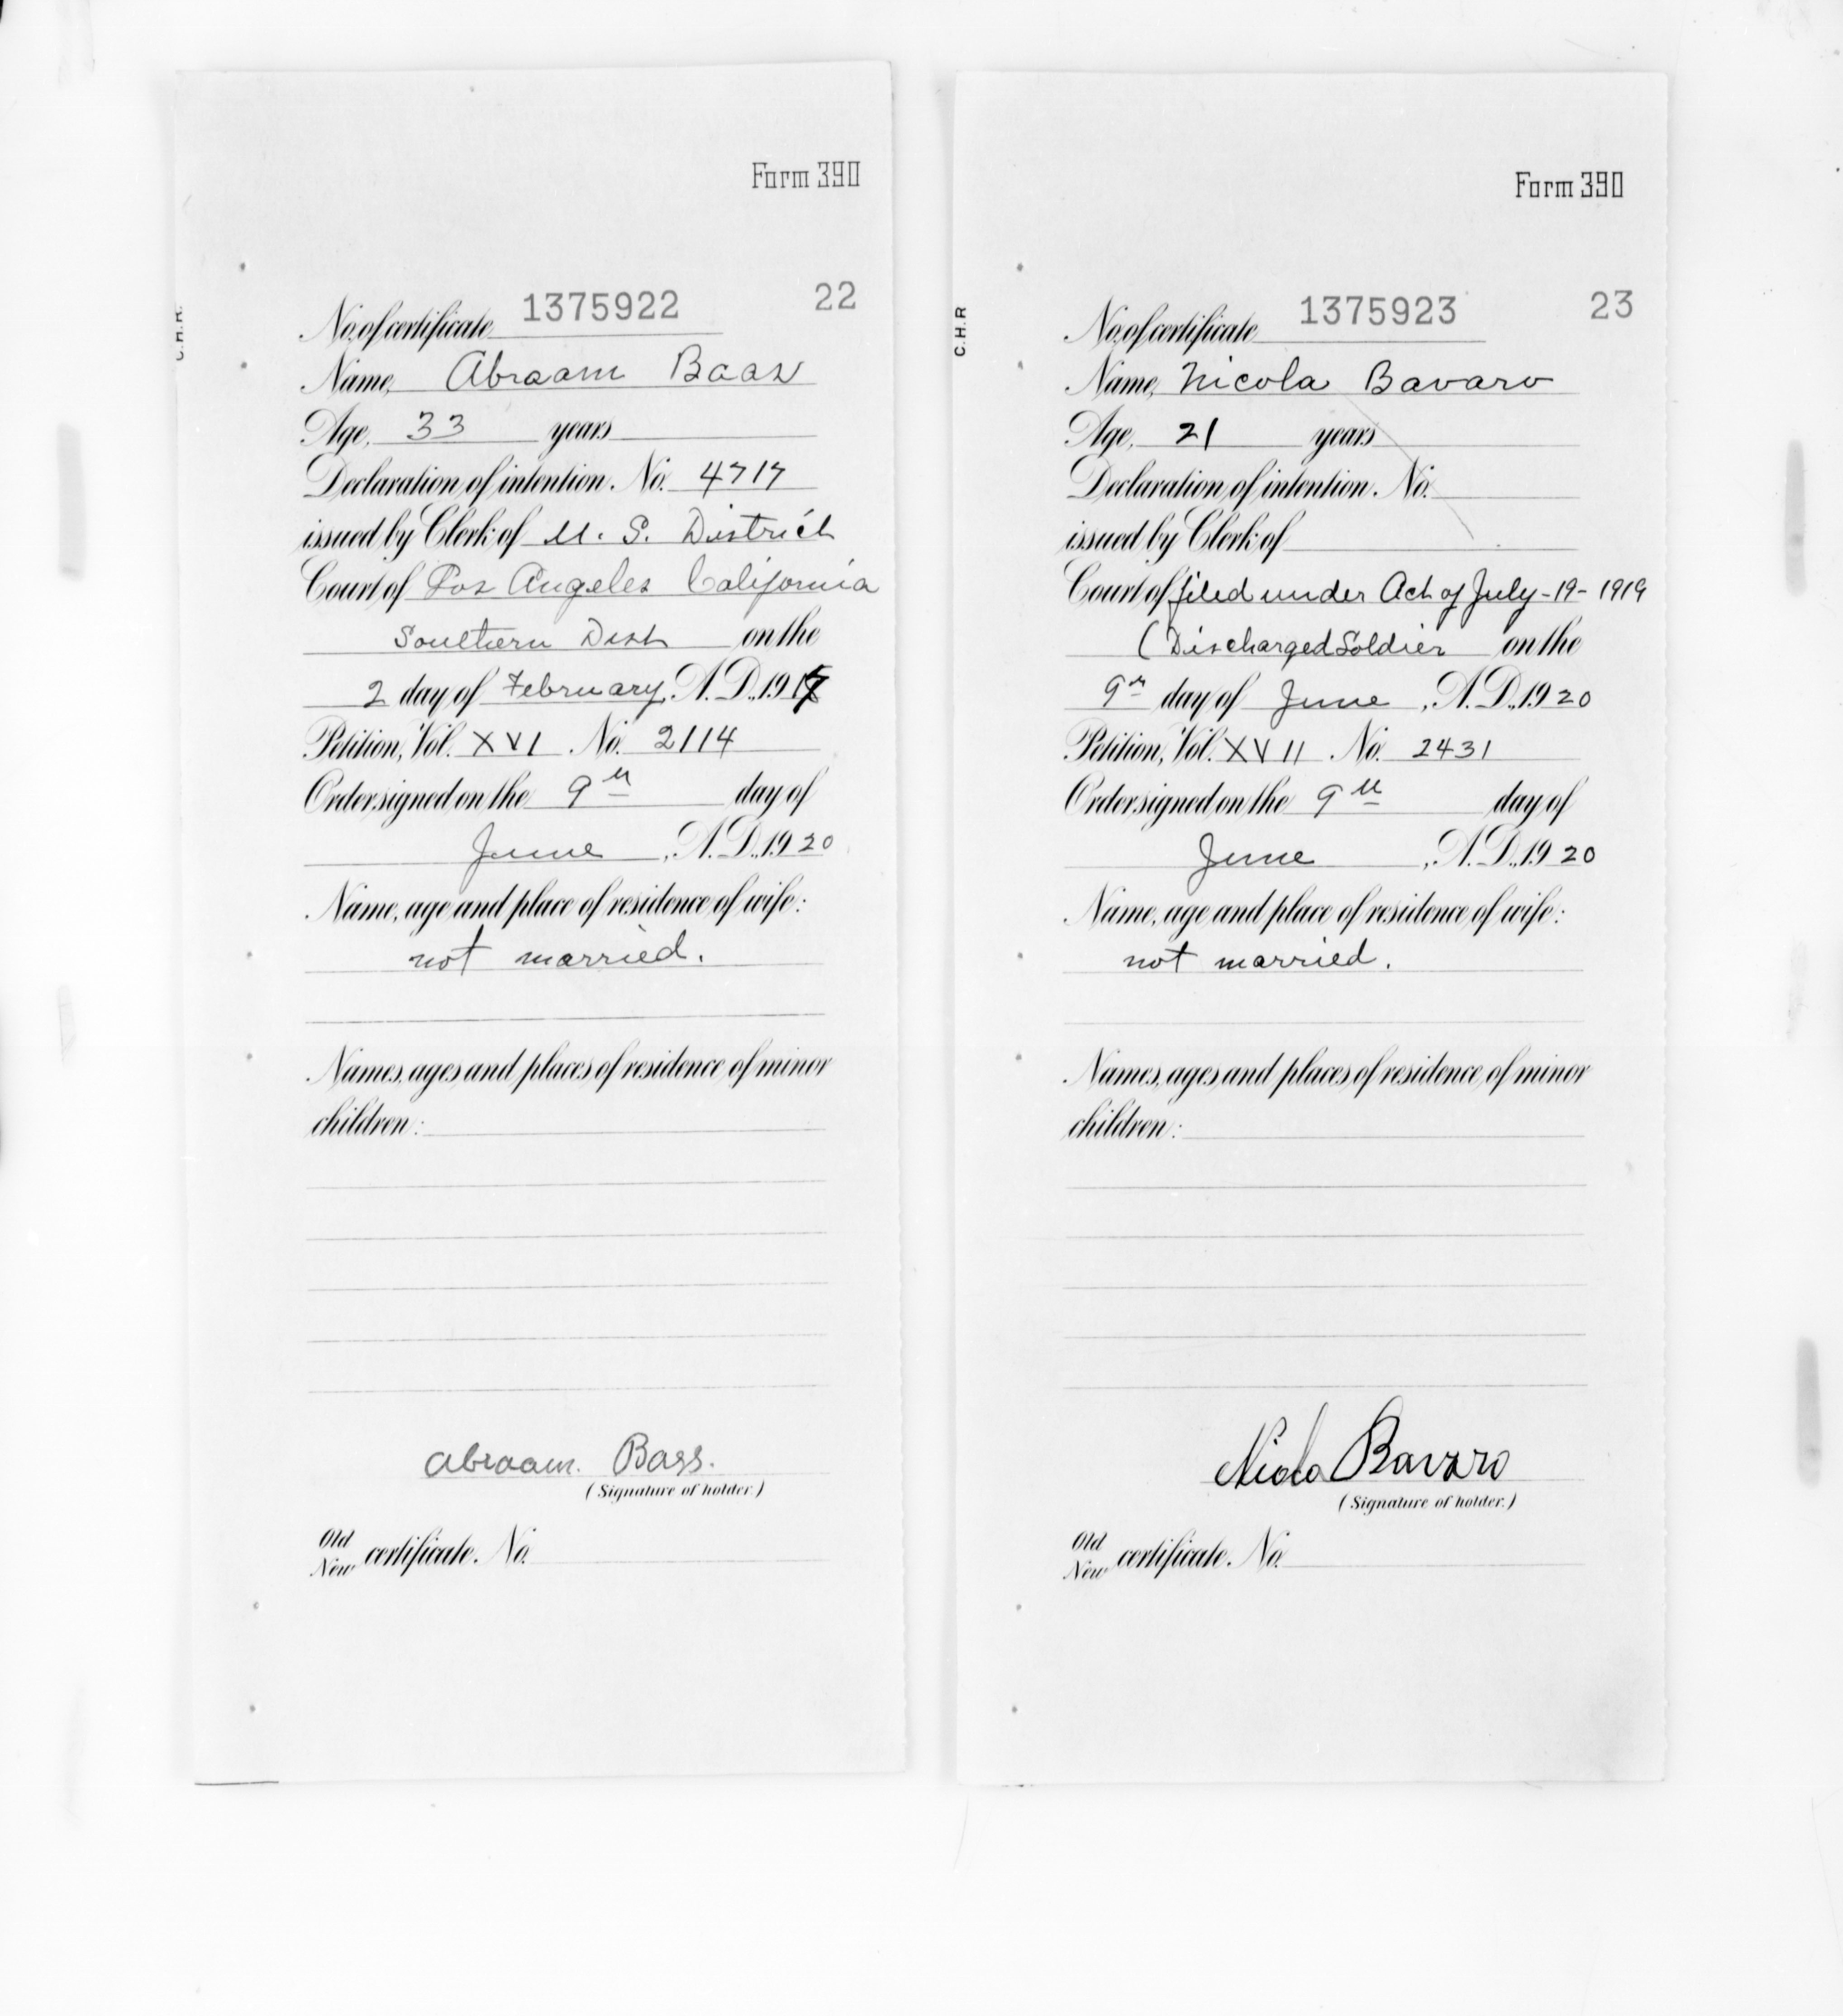 Form 390
C.H.R.
No. of certificate 1375922 22
Name, Abraam Bass
Age, 33 years
Declaration of intention. No. 4717
issued by Clerk of U. S. District
Court of Los Angeles California
Southern Dist on the
2 day of February, A.D., 1917
Petition, Vol. XVI No. 2114
Order signed on the 9th day of
June, A.D., 1920
Name, age and place of residence of wife:
not married.
Names, ages and places of residence of minor
children:
Abraam. Bass.
(Signature of holder.)
Old
New certificate. No.
Form 390
C.H.R
No. of certificate 1375923 23
Name, Nicola Bavaro
Age, 21 years
Declaration of intention. No.
issued by Clerk of
Court of filed under Act of July-19-1919
(Discharged Soldier on the
9th day of June, A.D., 1920
Petition, Vol. XVII No. 2431
Order signed on the 9th day of
June, A.D., 1920
Name, age and place of residence of wife:
not married.
Names, ages and places of residence of minor
children:
Nicola Bavaro
(Signature of holder.)
Old
New certificate. No.